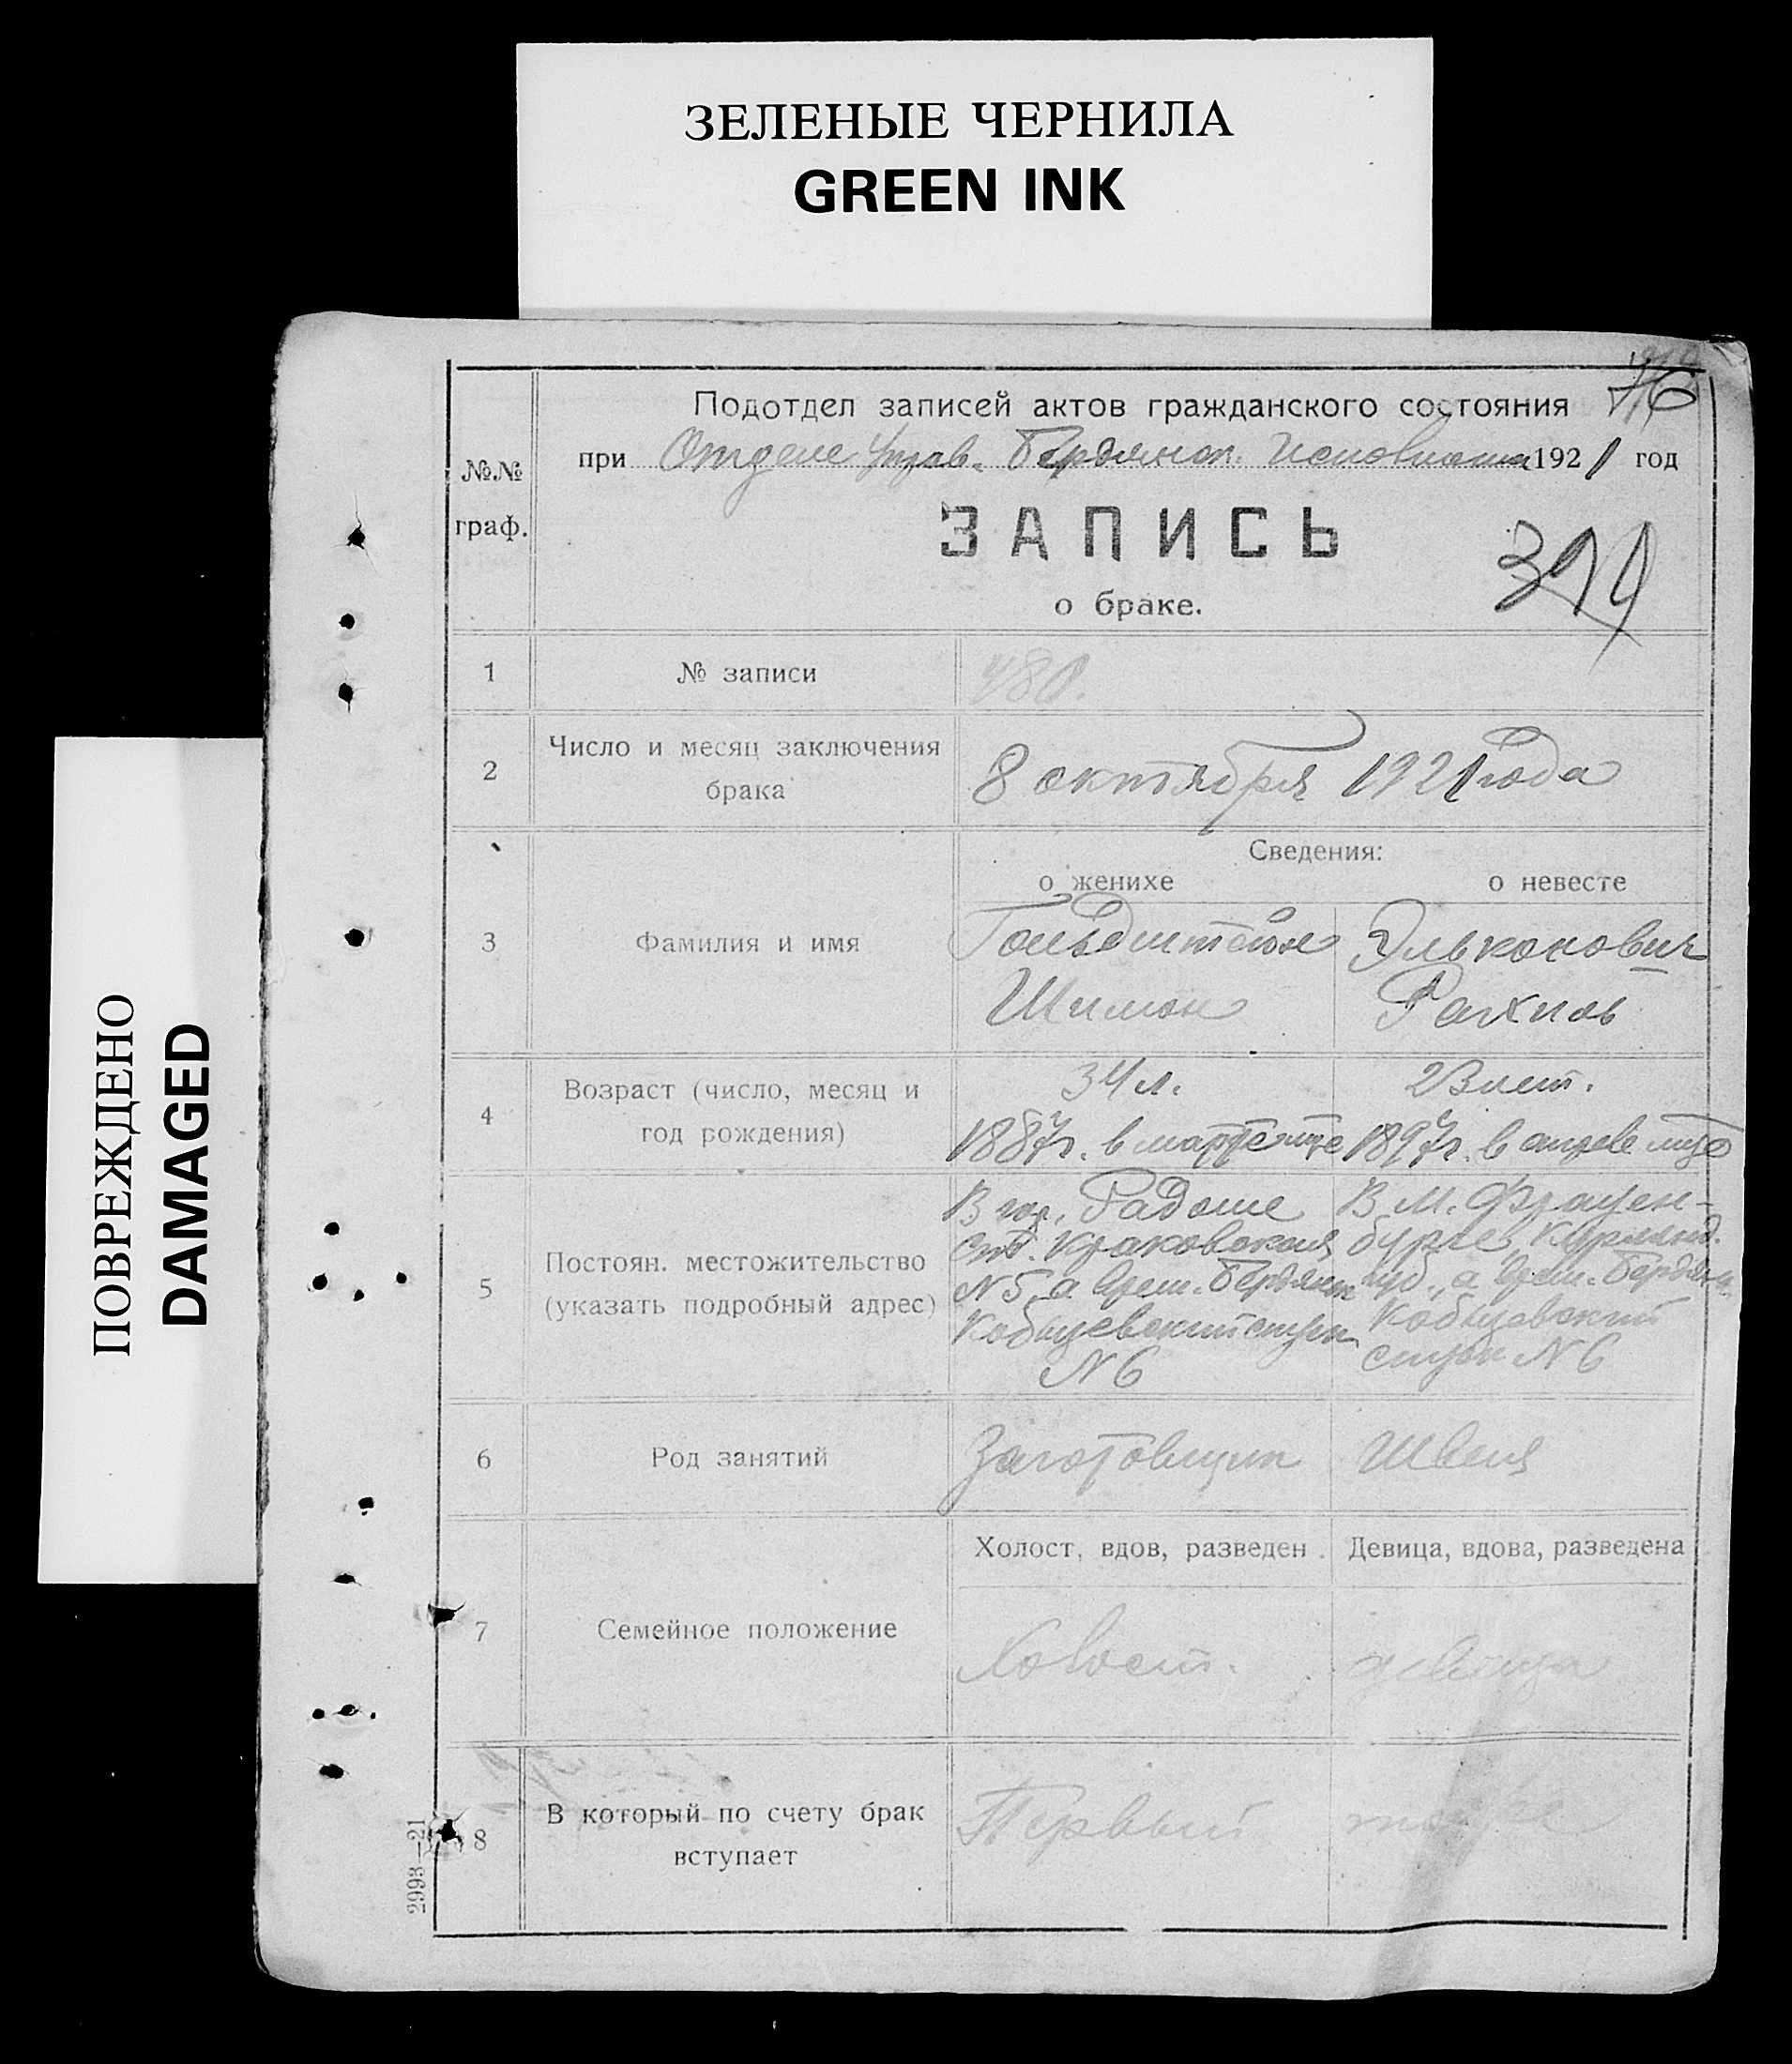 ЗЕЛЕНЫЕ ЧЕРНИЛА
GREEN INK
ПОВРЕЖДЕНО
DAMAGED
76
Подотдел записей актов гражданского состояния
при Отделе Управ. Бердянск. Исполкома 1921 год
№№ граф.
ЗАПИСЬ
о браке.
394
1 № записи 480.
2 Число и месяц заключения
брака
8 октября 1921 года
Сведения:
о женихе о невесте
3 Фамилия и имя
Гольдштейн Эльконович
Шимон Рахиль
4 Возраст (число, месяц и
год рождения)
34 л. 23 лет.
1887 г. в марте м-це 1897 г. в апреле м-це
5 Постоян. местожительство
(указать подробный адрес)
В гор. Радоме
Краковская
N 5, а врем. Бердянск
Кобызевский спуск
N 6
В м. Фрауен-
бурге, Курлянд.
губ., а врем. Бердянск
Кобызевский
спуск N 6
6 Род занятий Заготовщик Швея
Холост, вдов, разведен Девица, вдова, разведена
7 Семейное положение Холост. девица
8 В который по счету брак
вступает
Первый тоже
2993—21